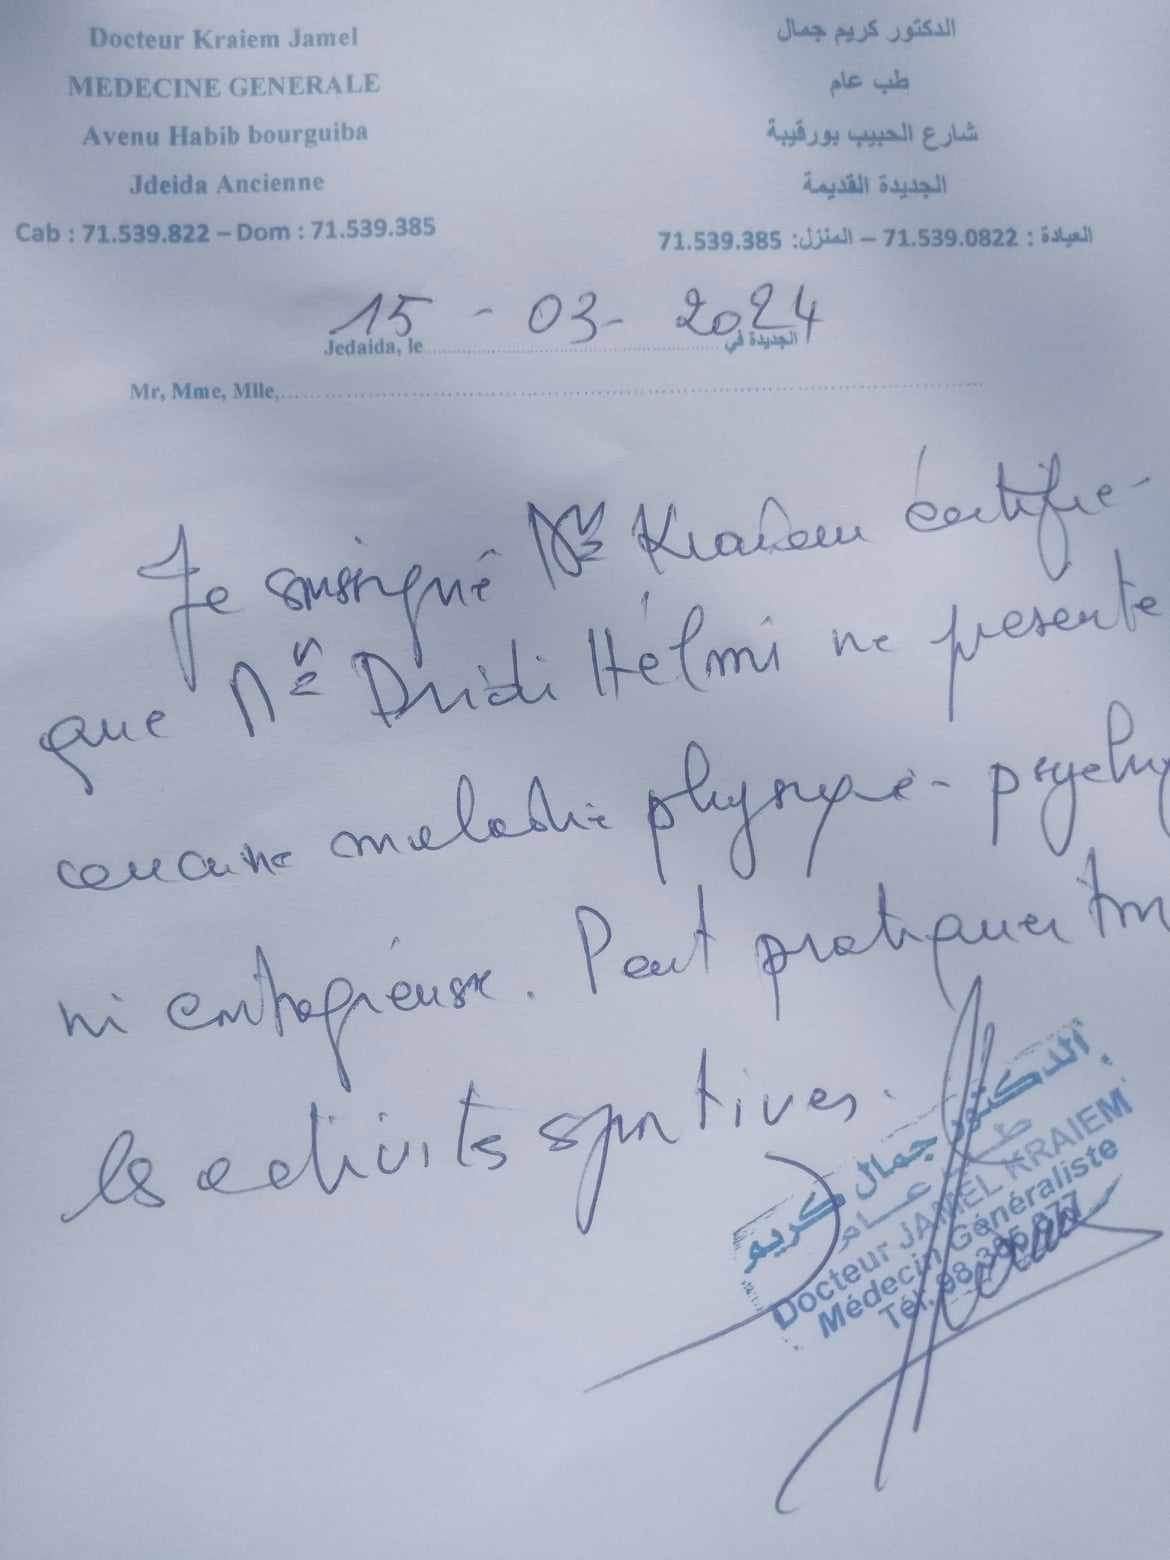 Docteur Kraiem Jamel
MEDECINE GENERALE
Avenu Habib bourguiba
Jdeida Ancienne
Cab : 71.539.822 – Dom : 71.539.385
الدكتور كريم جمال
طب عام
شارع الحبيب بورقيبة
الجديدة القديمة
العيادة : 71.539.0822 – المنزل: 71.539.385
Jedaida, le 15 - 03 - 2024 الجديدة في
Mr, Mme, Mlle,
Je soussigné Kraiem certifie
que Mr Dridi Hélmi ne presente
aucune maladie physique - psychiq
ni contagieuse. Peut pratiquer
les activités sportives.
الدكتور جمال كريم
طب عام
Docteur JAMEL KRAIEM
Médecin Généraliste
Tél. 98.385.877